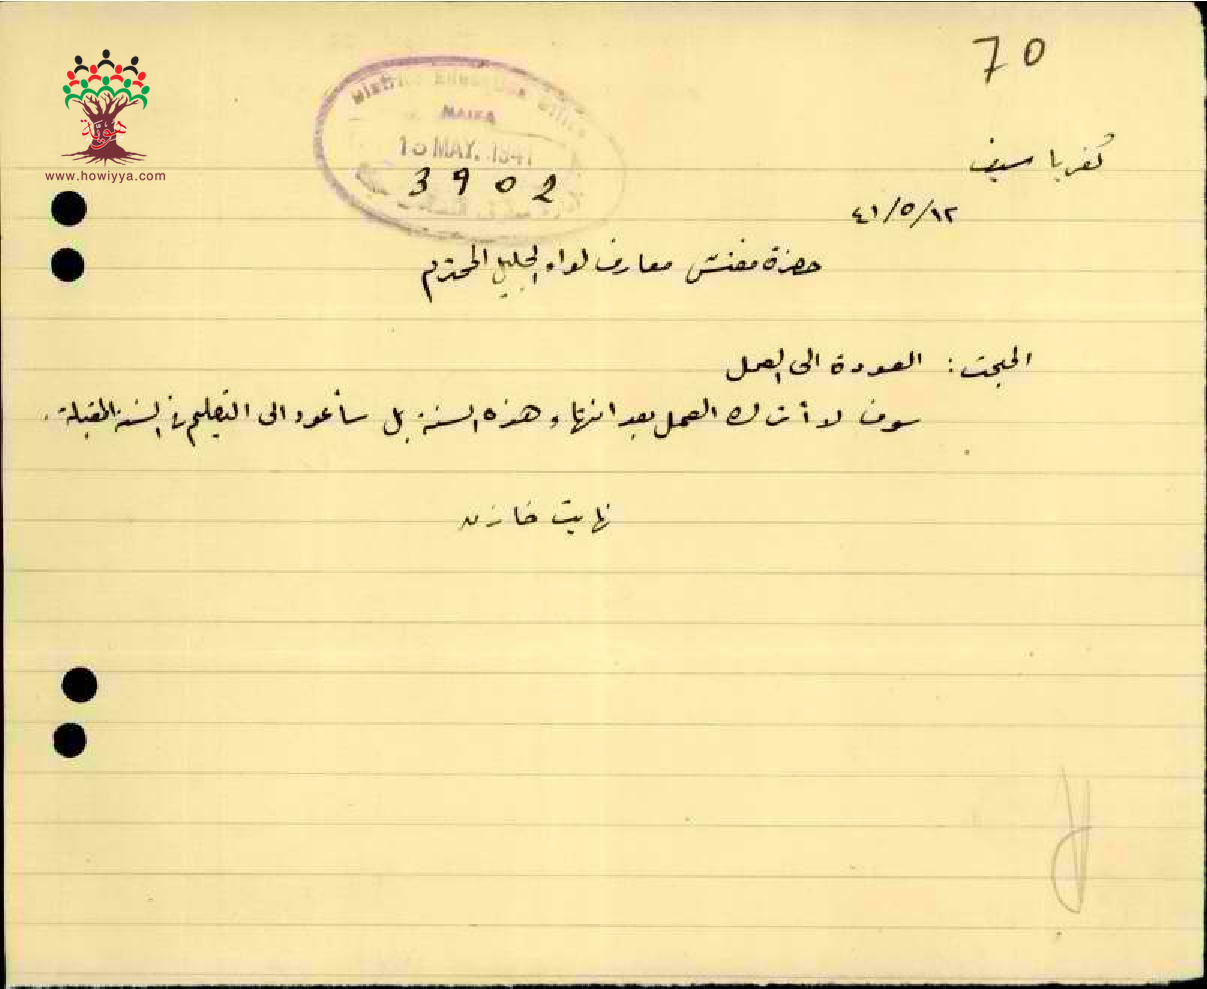 70
District Education Office
HAIFA
13 MAY. 1941
3902
هوية
www.howiyya.com
كفر ياسيف
٤١/٥/١٢
حضرة مفتش معارف لواء الجليل المحترم
المبحث : العودة الى العمل
سوف لا أترك العمل بعد انتهاء هذه السنة بل سأعود الى التعليم في السنة المقبلة .